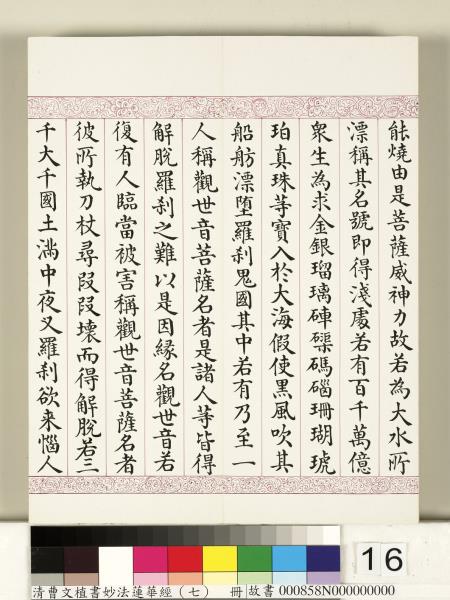 能燒由是菩薩威神力故若為大水所
漂稱其名號即得淺處若有百千萬億
眾生為求金銀瑠璃硨磲碼碯珊瑚琥
珀真珠等寶入於大海假使黑風吹其
船舫漂墮羅刹鬼國其中若有乃至一
人稱觀世音菩薩名者是諸人等皆得
解脫羅刹之難以是因緣名觀世音若
復有人臨當被害稱觀世音菩薩名者
彼所執刀杖尋段段壞而得解脫若三
千大千國土滿中夜叉羅刹欲来惱人
16
清曹文植書妙法蓮華經（七） 冊 故書 000858N000000000